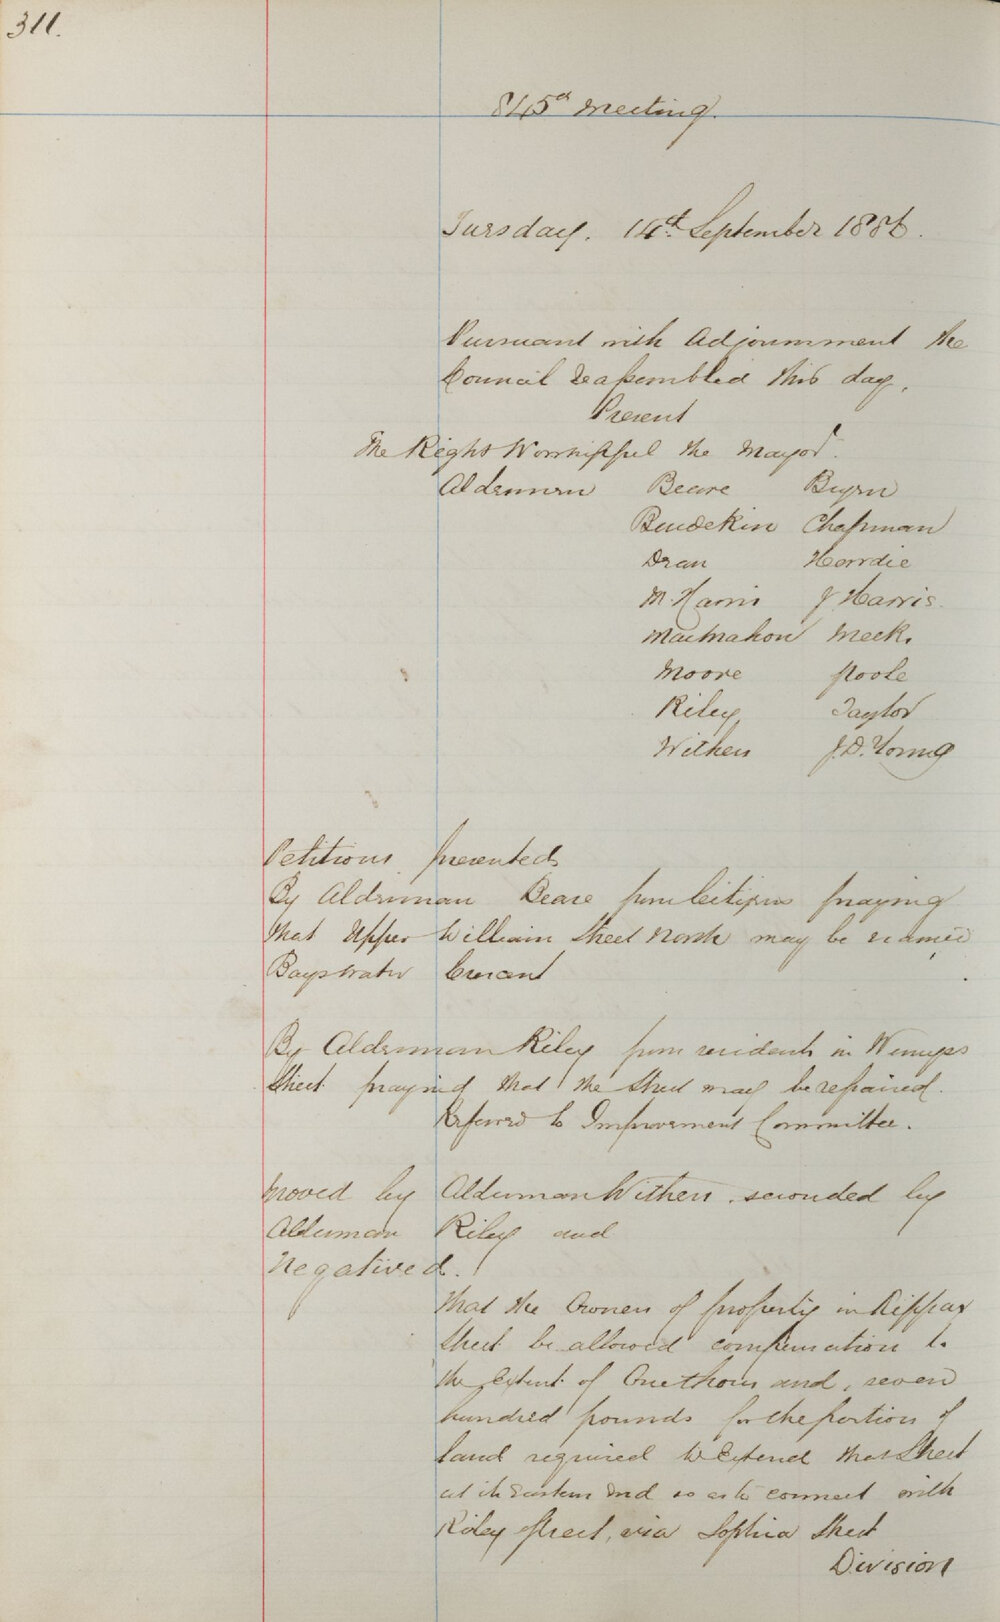 311.
845th Meeting.
Tuesday. 14th September 1886.
Pursuant with Adjournment the
Council reassembled this day.
Present
The Right Worshipful the Mayor.
Aldermen Beare Burn
Burdekin Chapman
Dean Hordie
M. Harris J Harris.
MacMahon Meek.
Moore Poole
Riley Taylor
Withers J.D. Young
Petitions presented
By Alderman Beare from Citizens praying
that Upper William Street North may be named
Bayswater Crescent
By Alderman Riley from residents in Wemyss
Street praying that the Street may be repaired.
Referred to Improvement Committee.
Moved by Alderman Withers. seconded by
Alderman Riley and
Negatived.
That the Owners of property in Rippax
Street be allowed compensation to
the Extent of One thousand, seven
hundred pounds for the portion of
land required to Extend that Street
at its Eastern End so as to connect with
Riley Street, via Sophia Street
Division